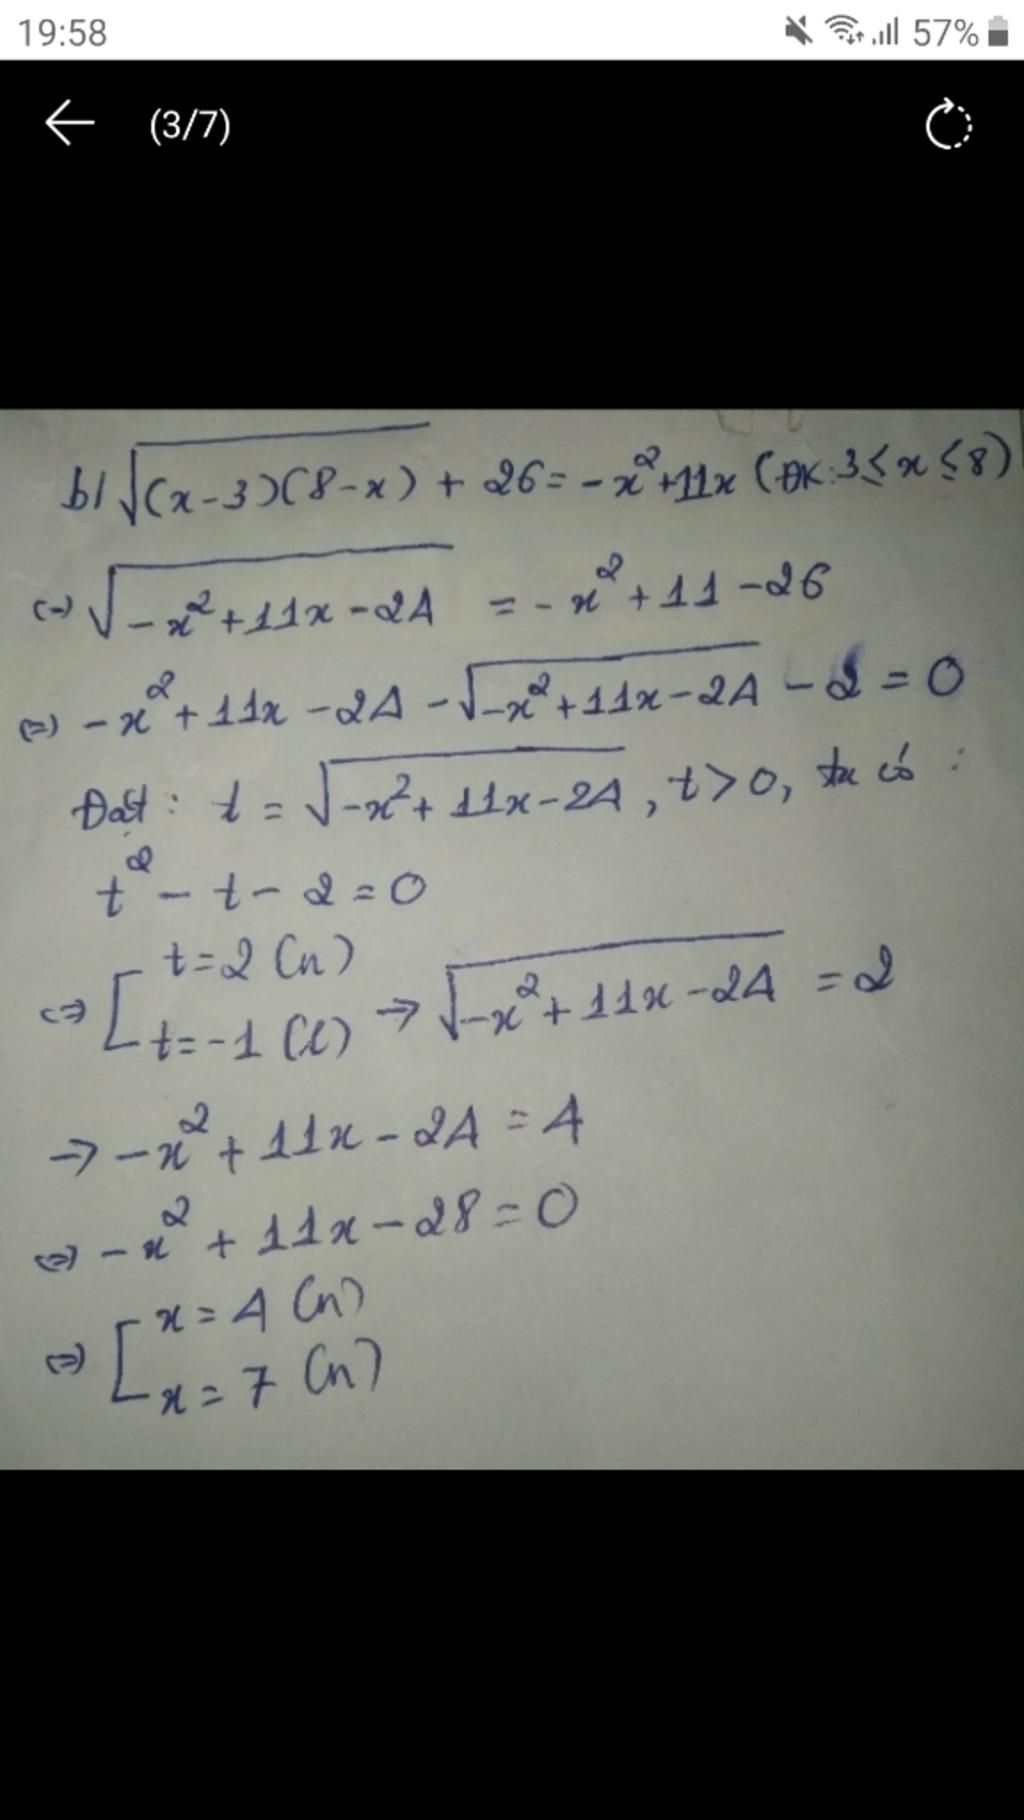 19:58 57%
(3/7)
b/ √(x-3)(8-x) + 26 = -x²+11x (ĐK: 3≤x≤8)
(=) √-x²+11x-24 = -x²+11-26
(=) -x²+11x-24-√-x²+11x-24 -2=0
Đặt: t = √-x²+11x-24, t>0, ta có:
t²-t-2=0
(=) [ t=2 (n)
t=-1 (l) → √-x²+11x-24 = 2
→ -x²+11x-24=4
(=) -x²+11x-28=0
(=) [ x=4 (n)
x=7 (n)